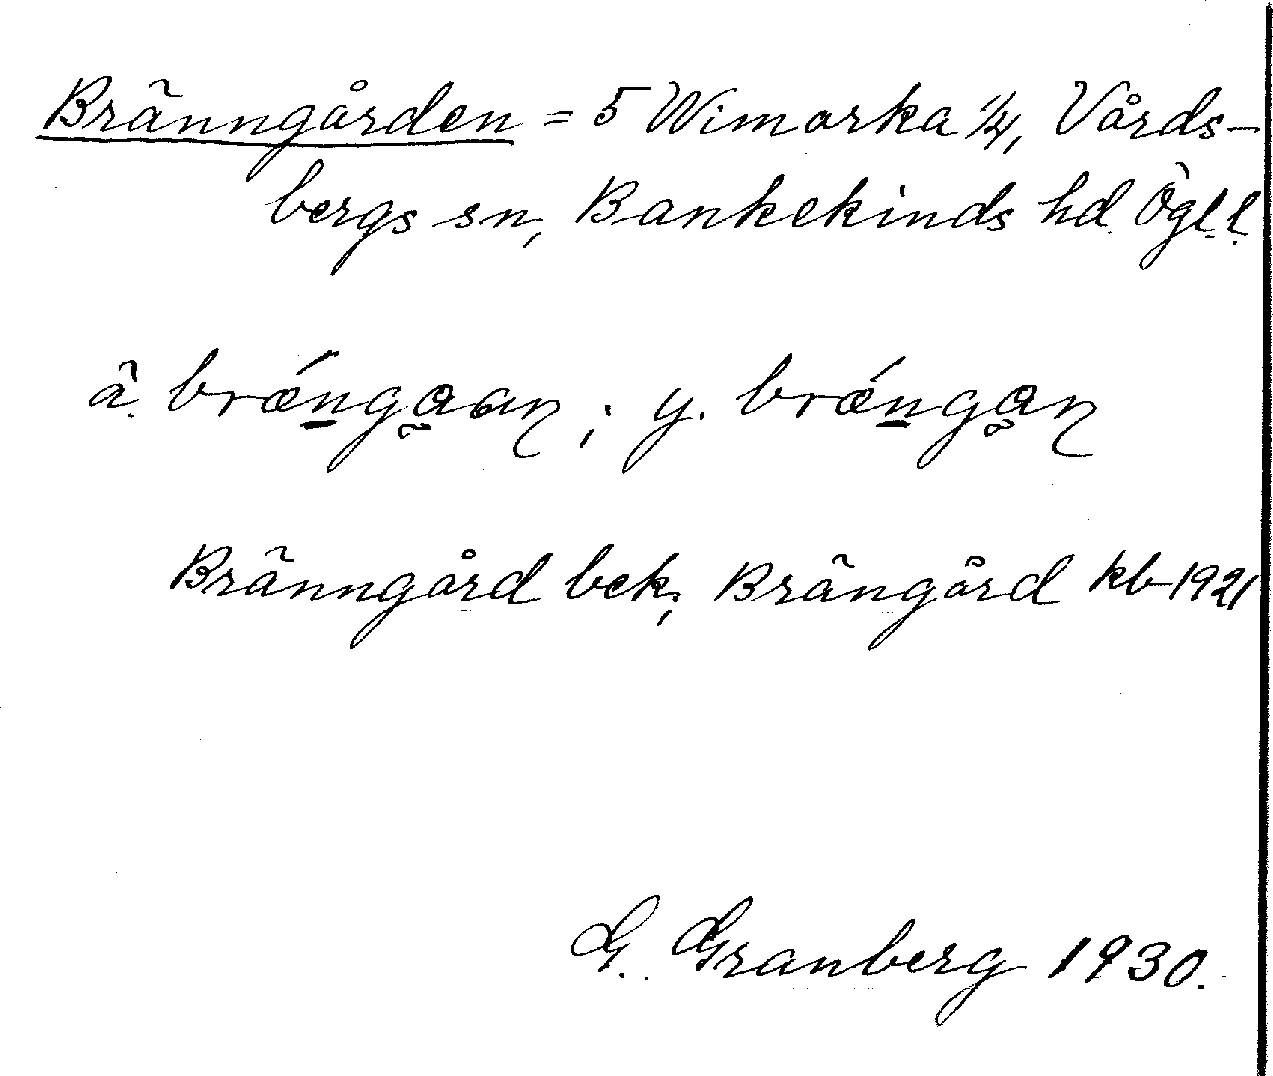 Bränngården = 5 Wimarka 1/4, Vårds-
bergs sn, Bankekinds hd Ögl l.
ä. bræ´ngaan ; y. bræ´ngan
Bränngård bek; Brängård kb 1921
G. Granberg 1930.